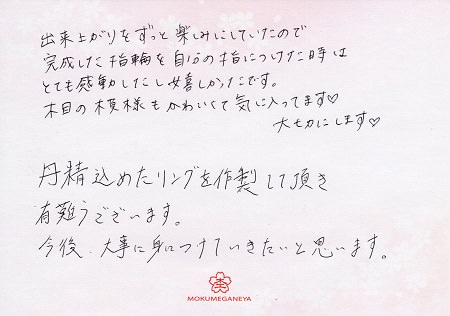 出来上がりをずっと楽しみにしていたので
完成した指輪を自分の指につけた時は
とても感動したし嬉しかったです。
木目の模様もかわいくて気に入ってます♡
大切にします♡
丹精込めたリングを作製して頂き
有難うございます。
今後、大事に身につけていきたいと思います。
MOKUMEGANEYA